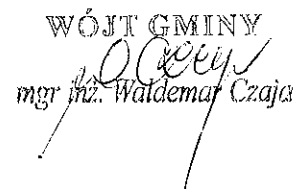 WÓJT GMINY
mgr inż. Waldemar Czaja